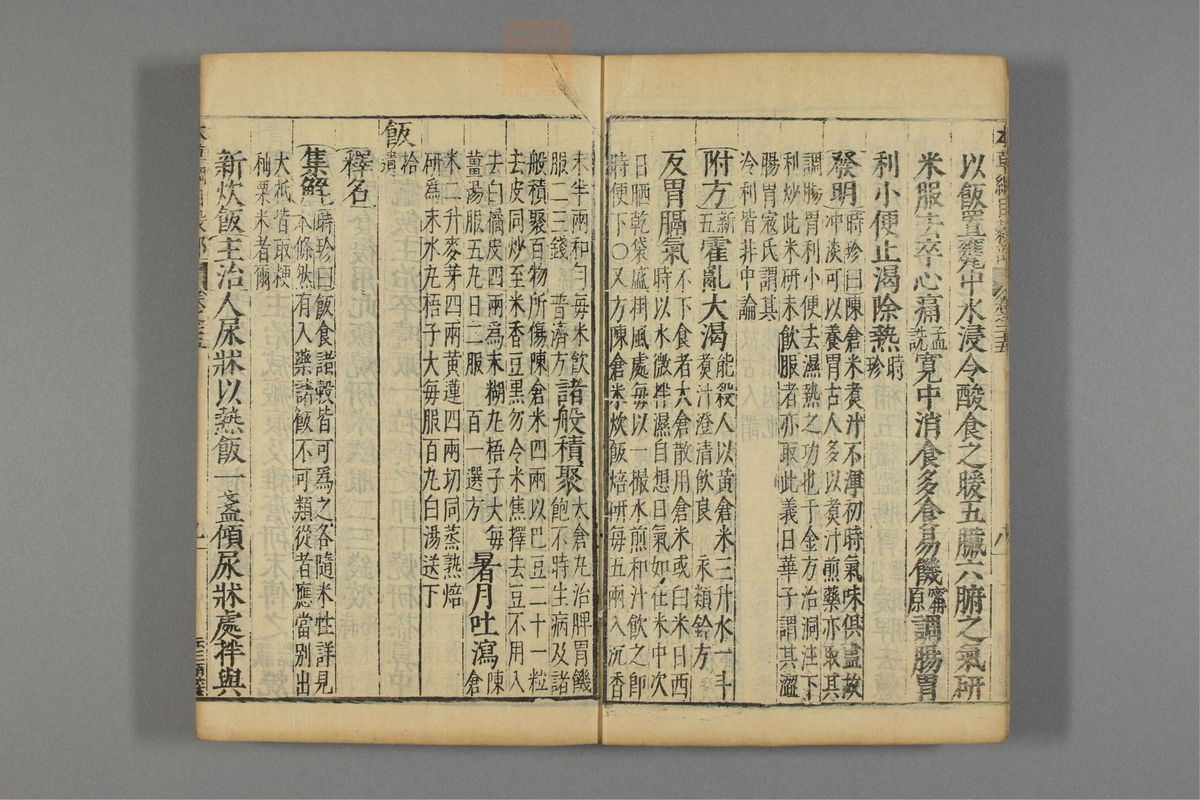 以飯置甕中水浸令酸食之暖五臟六腑之氣研
米服去卒心痛孟詵寬中消食多食易饑甯原調腸胃
利小便止渴除熱時珍
發明時珍曰陳倉米煮汁不渾初時氣味俱盡故
冲淡可以養胃古人多以煮汁煎藥亦取其
調腸胃利小便去濕熱之功也千金方治洞注下
利炒此米研末飲服者亦取此義日華子謂其澀
腸胃寇氏謂其
冷利皆非中論
附方新五霍亂大渴能殺人以黃倉米三升水一斗
煮汁澄清飲良 永類鈐方
反胃膈氣不下食者太倉散用倉米或白米日西
時以水微拌濕自想日氣如在米中次
日晒乾袋盛掛風處每以一撮水煎和汁飲之即
時便下〇又方陳倉米炊飯焙研每五兩入沉香
末半兩和勻每米飲
服二三錢 普濟方諸般積聚太倉丸治脾胃饑
飽不時生病及諸
般積聚百物所傷陳倉米四兩以巴豆二十一粒
去皮同炒至米香豆黑勿令米焦擇去豆不用入
去白橘皮四兩爲末糊丸梧子大每
薑湯服五丸日二服 百一選方暑月吐瀉陳
倉
米二升麥芽四兩黃連四兩切同蒸熟焙
研爲末水丸梧子大每服百丸白湯送下
飯拾遺
釋名
集解時珍曰飯食諸穀皆可爲之各隨米性詳見
本條然有入藥諸飯不可類從者應當別出
大抵皆取粳
秈粟米者爾
新炊飯主治人尿牀以熱飯一盞傾尿牀處拌與